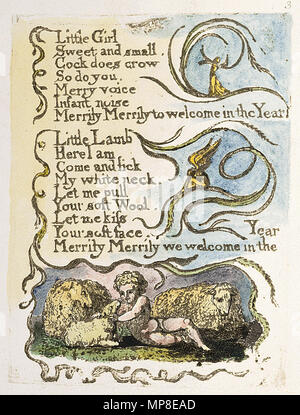 3
Little Girl
Sweet and small.
Cock does crow
So do you.
Merry voice
Infant noise
Merrily Merrily to welcome in the Year
Little Lamb
Here I am
Come and lick
My white neck.
Let me pull
Your soft Wool.
Let me kiss
Your soft face.
Merrily Merrily we welcome in the Year